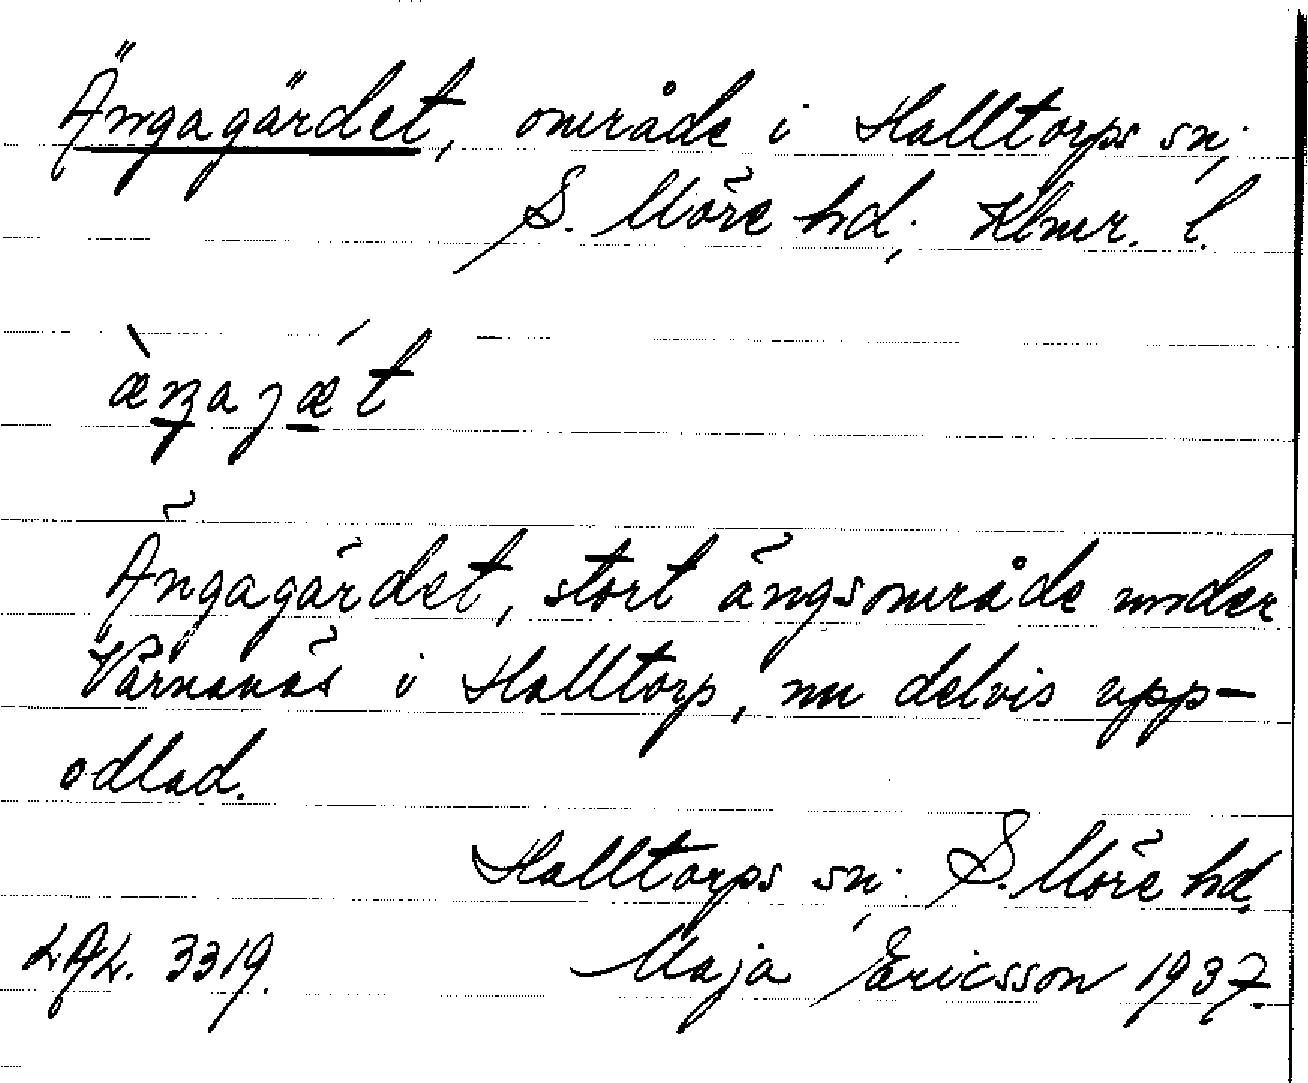 Ängagärdet, område i Halltorps sn;
S. Möre hd; Klmr. l.
æ̀ŋajǽt
Ängagärdet, stort ängsområde under
Värnanäs i Halltorp, nu delvis upp-
odlad.
Halltorps sn; S. Möre hd,
LAL. 3319. Maja Ericsson 1937.